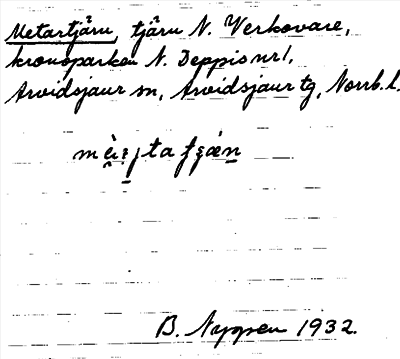 Metartjärn, tjärn N. Verkovare,
kronoparken N. Deppis nr 1,
Arvidsjaur sn, Arvidsjaur tg, Norrb. l.
B. Nygren 1932.